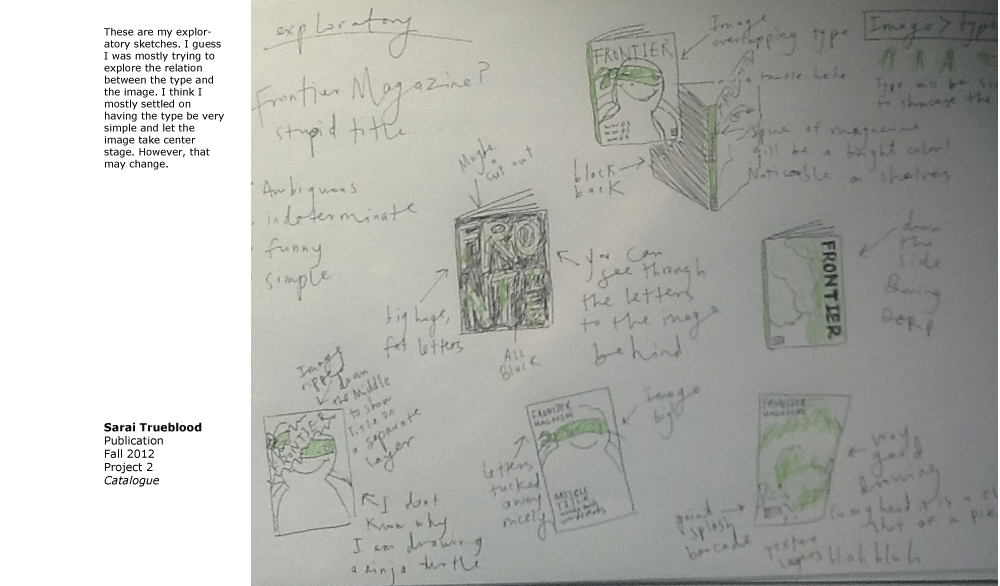 These are my explor-
atory sketches. I guess
I was mostly trying to
explore the relation
between the type and
the image. I think I
mostly settled on
having the type be very
simple and let the
image take center
stage. However, that
may change.
Sarai Trueblood
Publication
Fall 2012
Project 2
Catalogue
exploratory
Frontier Magazine?
stupid title
Ambiguous
indeterminate
funny
simple
Image > type
Type will be
to showcase the
FRONTIER
WORDS
WORDS
WORDS
Image
overlapping type
ninja turtle here
Spine of magazine
will be a bright color!
Noticeable shelves
black
back
Maybe
a
cut out
FRO
NTE
big huge,
fat letters
All
Black
you can
see through
the letters
to the image
behind
FRONTIER
down
the
side
Boring
DERP
Image
ripped down
the Middle
to show
title on
a separate
layer
I dont
know why
I am drawing
a ninja turtle.
FRONTIER
MAGAZINE
ARTICLE
TITLE
Image
big
letters
tucked
away
nicely
FRONTIER
MAGAZINE
way
good
drawing
(in my head it is a
shot of a
paint
splash
barcode
texture
layers blah blah